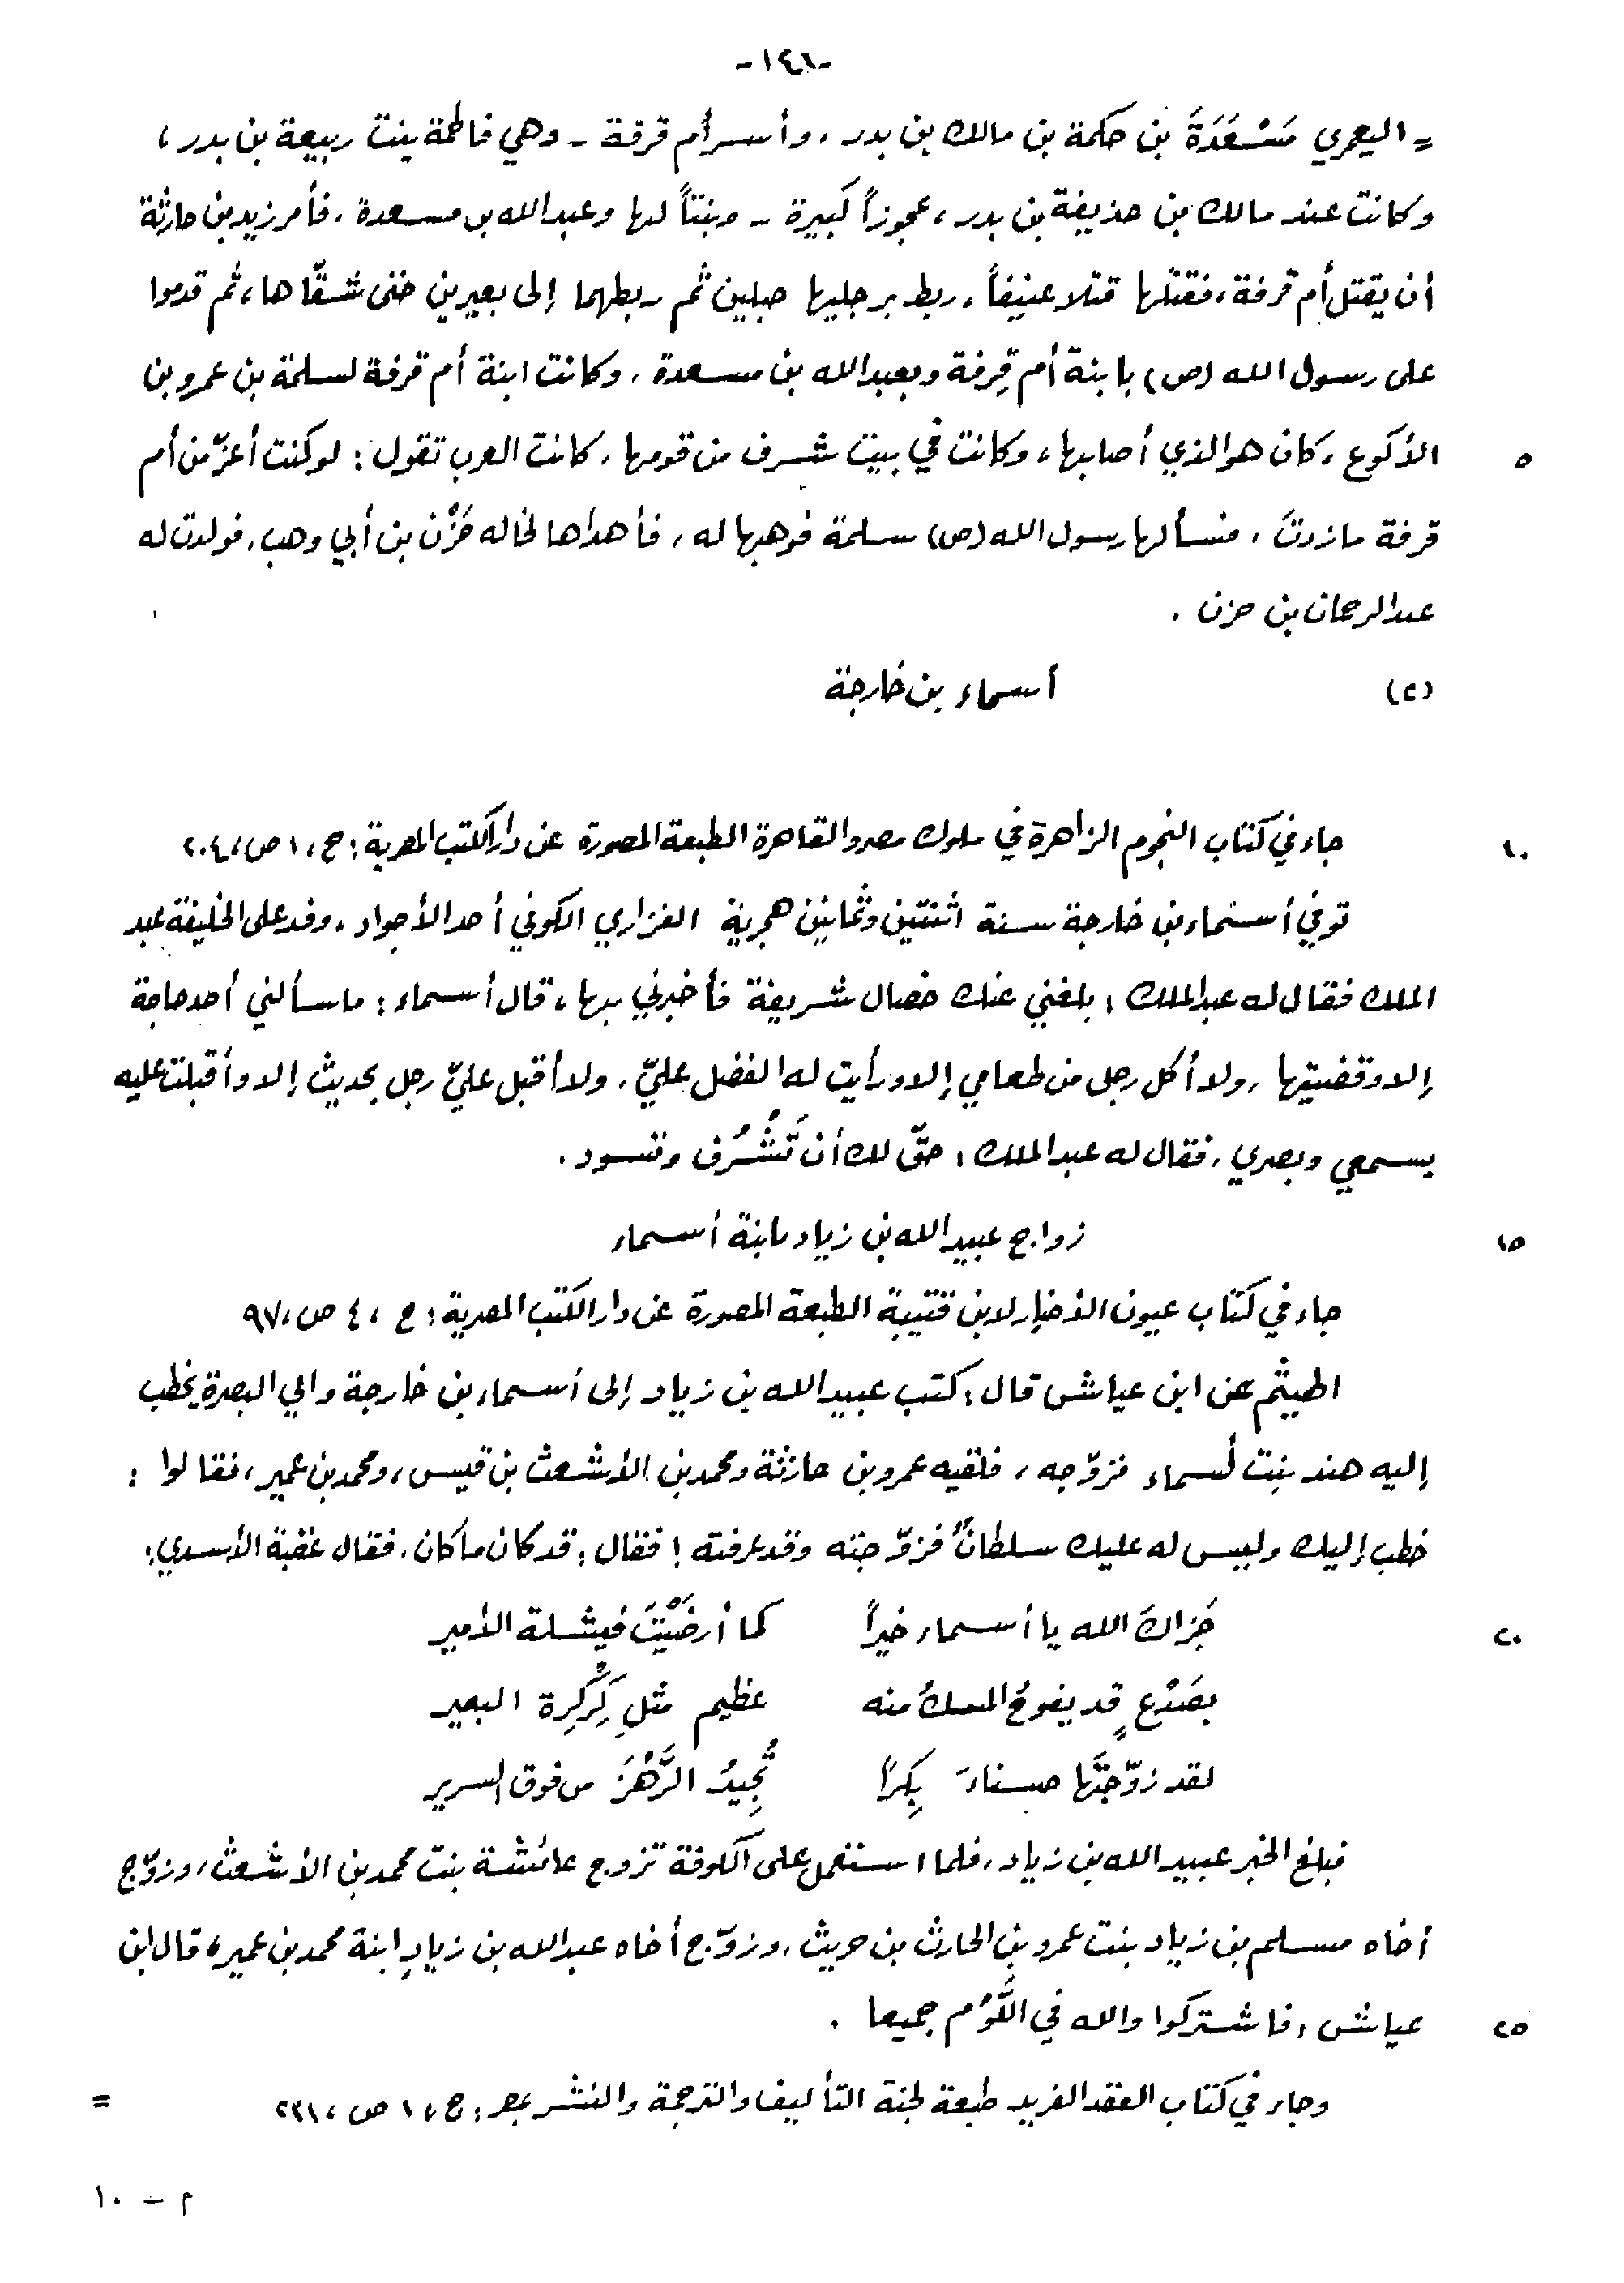 -١٤١-
= اليعمري مَسْعَدَةَ بن حكمة بن مالك بن بدر ، وأسر أم قرفة - وهي فاطمة بنت ربيعة بن بدر ،
وكانت عند مالك بن حذيفة بن بدر ، عجوزاً كبيرة - وبنتاً لها وعبد الله بن مسعدة ، فأمر زيد بن حارثة
أن يقتل أم قرفة ، فقتلها قتلا عنيفاً ، ربط برجليها حبلين ثم ربطهما إلى بعيرين حتى شقّاها ، ثم قدموا
على رسول الله (ص) بابنة أم قِرفة وبعبد الله بن مسعدة ، وكانت ابنة أم قرفة لسلمة بن عمرو بن
٥ الأكوع ، كان هو الذي أصابها ، وكانت في بيت شرف من قومها ، كانت العرب تقول : لو كنت أعزّ من أم
قرفة ما زدتَ ، فسألها رسول الله (ص) سلمة فوهبها له ، فأهداها لخاله حَزْن بن أبي وهب ، فولدت له
عبد الرحمان بن حزن .
(٢) أسماء بن خارجة
١٠ جاء في كتاب النجوم الزاهرة في ملوك مصر والقاهرة الطبعة المصورة عن دار الكتب المصرية : ج ، ١ ص ، ٢٠٤
توفي أسماء بن خارجة سنة اثنتين وثمانين هجرية الفزاري الكوفي أحد الأجواد ، وفد على الخليفة عبد
الملك فقال له عبد الملك : بلغني عنك خصال شريفة فأخبرني بها ، قال أسماء : ما سألني أحد حاجة
إلا وقضيتها ، ولا أكل رجل من طعامي إلا ورأيت له الفضل عليّ ، ولا أقبل عليّ رجل بحديث إلا وأقبلت عليه
بسمعي وبصري ، فقال له عبد الملك : حقّ لك أن تَشْرُف وتسود .
١٥ زواج عبيد الله بن زياد بابنة أسماء
جاء في كتاب عيون الأخبار لابن قتيبة الطبعة المصورة عن دار الكتب المصرية : ج ، ٤ ص ، ٩٧
الهيثم عن ابن عياش قال : كتب عبيد الله بن زياد إلى أسماء بن خارجة والي البصرة يخطب
إليه هند بنت أسماء فزوّجه ، فلقيه عمرو بن حارثة ومحمد بن الأشعث بن قيس ، ومحمد بن عمير ، فقالوا :
خطب إليك وليس له عليك سلطانٌ فزوّجته وقد عرفته ! فقال : قد كان ما كان ، فقال عقبة الأسدي :
٢٠ جَزاكَ الله يا أسماء خيراً كما أرضَيْتَ فيشلة الأمير
بصَدْعٍ قد يفوحُ المسكُ منه عظيم مثلِ كِرْكِرة البعير
لقد زوّجتَها حسناءَ بِكراً تُجِيدُ الرَّهْزَ من فوق السرير
فبلغ الخبر عبيد الله بن زياد ، فلما استعمل على الكوفة تزوج عائشة بنت محمد بن الأشعث ، وزوّج
أخاه مسلم بن زياد بنت عمرو بن الحارث بن حريث ، وزوّج أخاه عبد الله بن زيادٍ ابنة محمد بن عمير ، قال ابن
٢٥ عياش : فاشتركوا والله في اللَّؤم جميعا .
وجاء في كتاب العقد الفريد طبعة لجنة التأليف والترجمة والنشر بمصر : ج ، ١ ص ، ٢٣١ =
م - ١٠